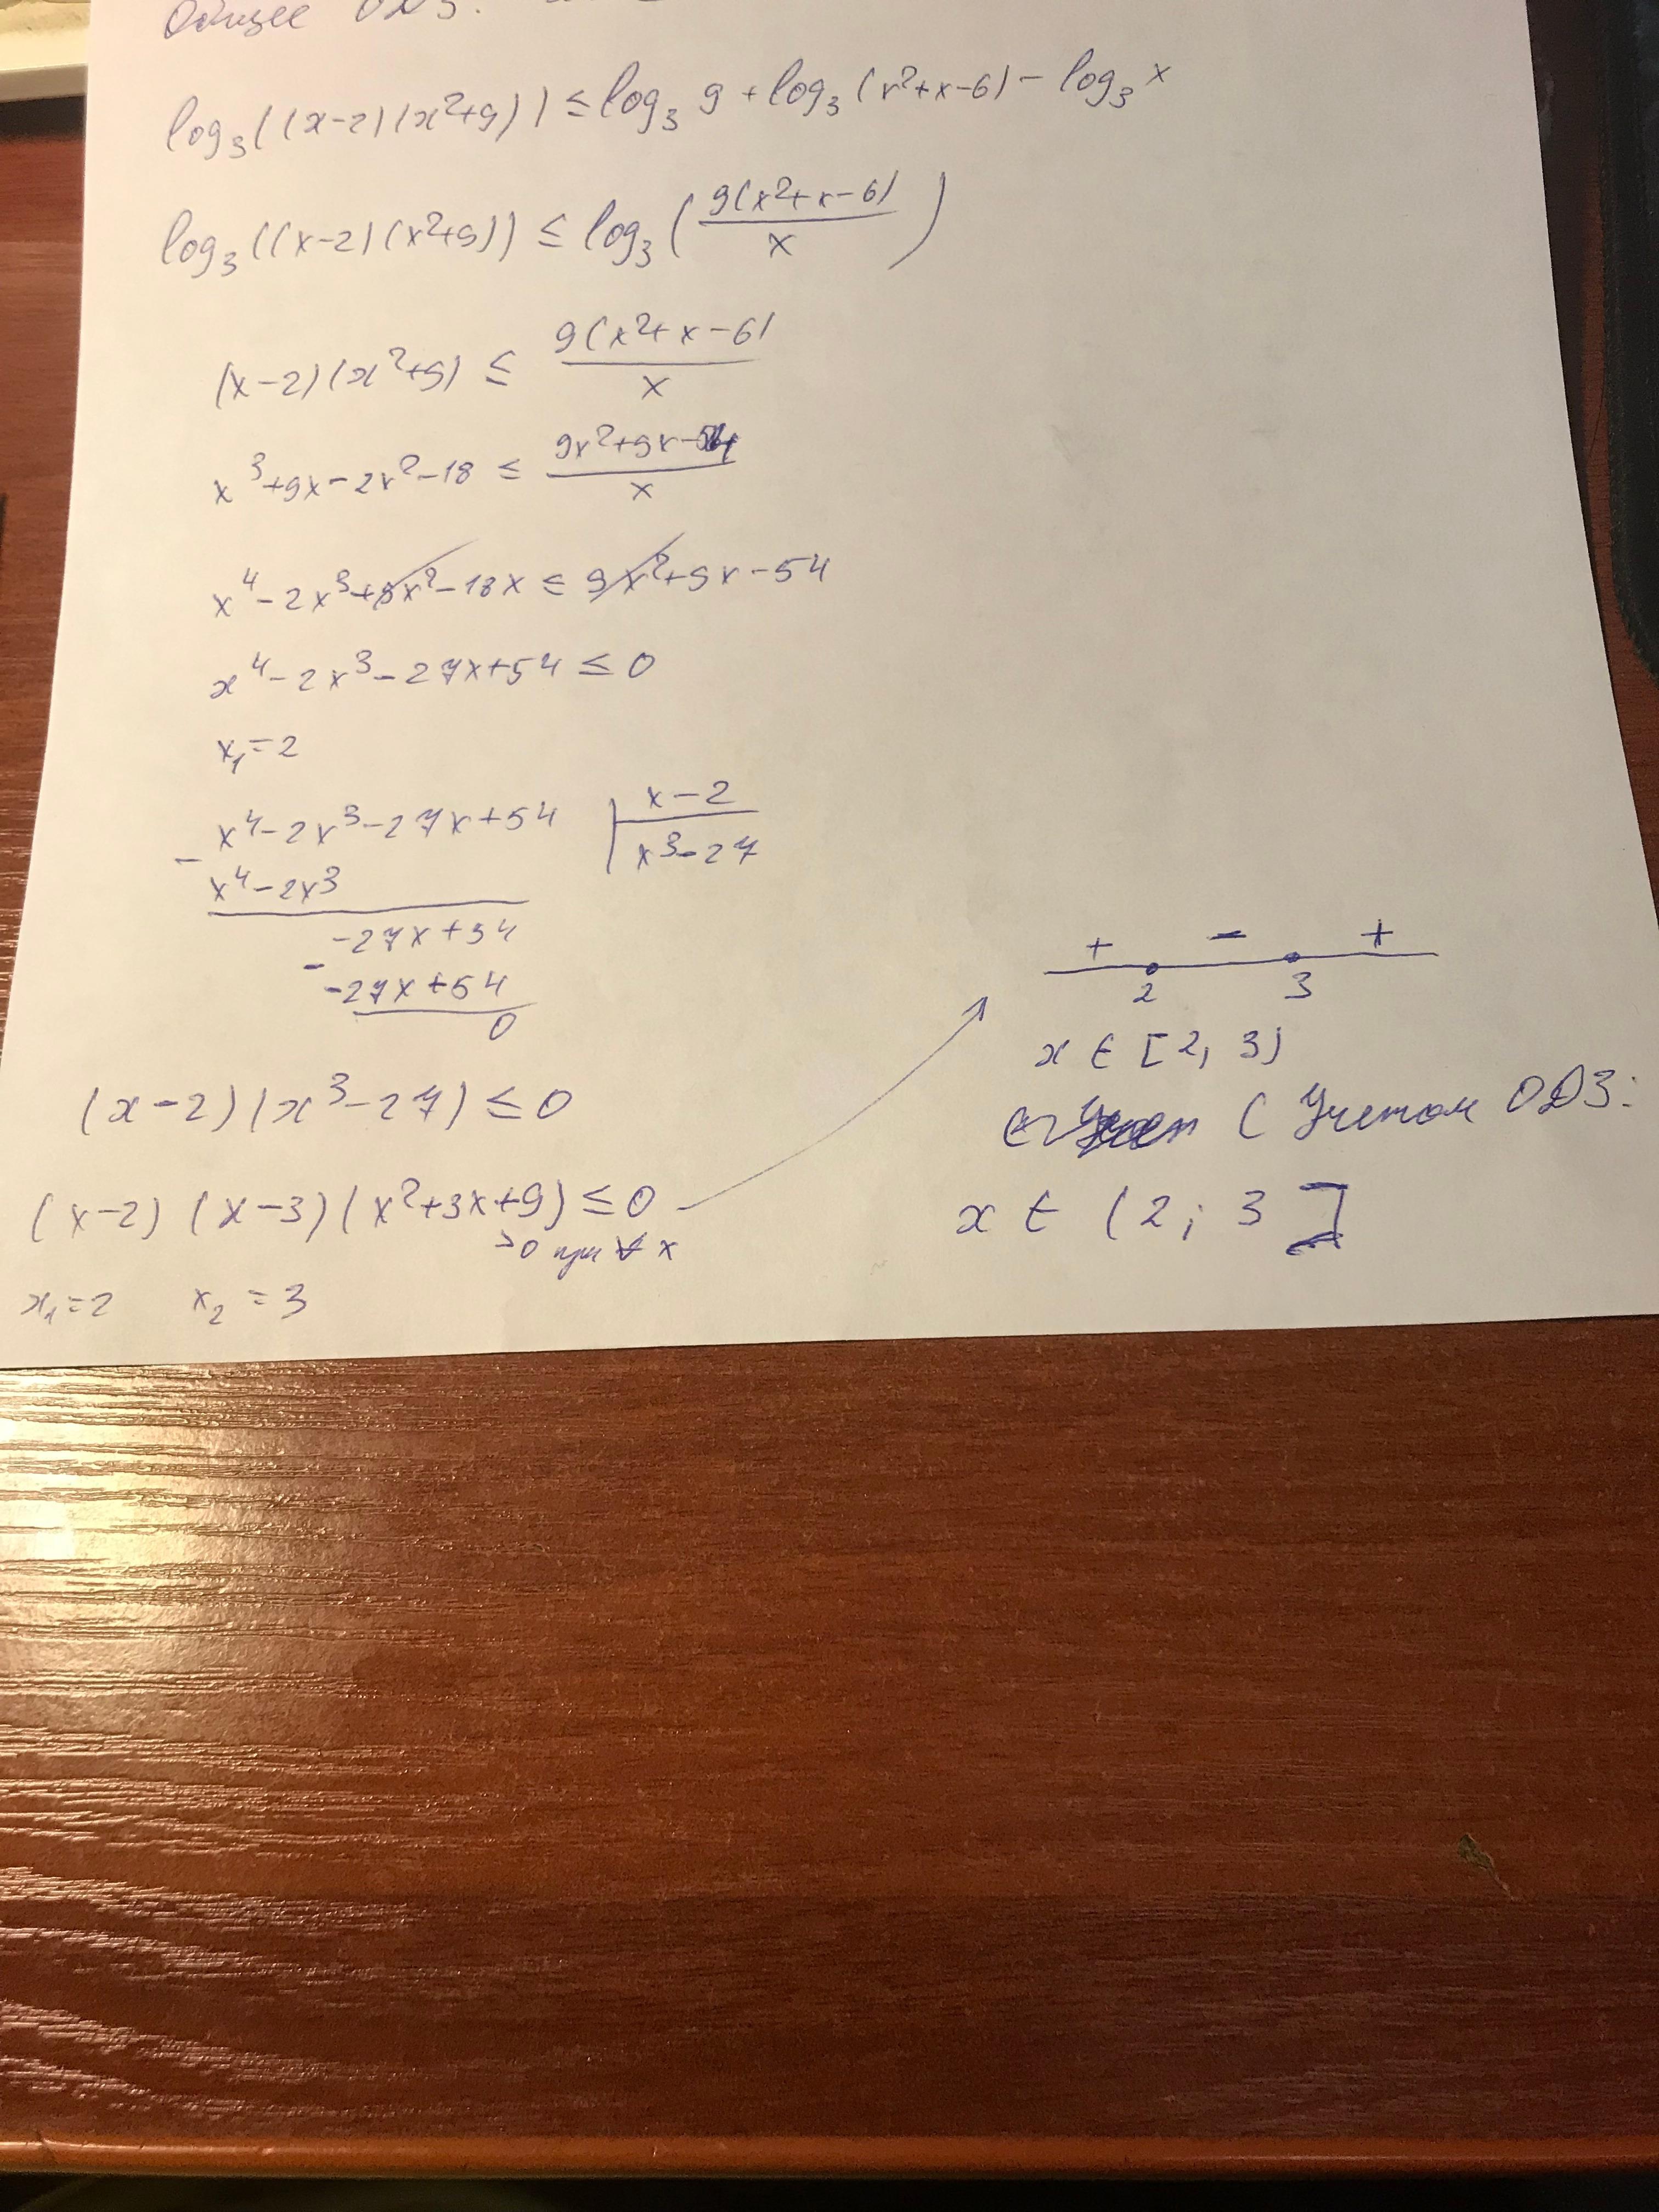 Общее ОДЗ:
log₃((x-2)(x²+9)) ≤ log₃ 9 + log₃ (x²+x-6) - log₃ x
log₃((x-2)(x²+9)) ≤ log₃ (9(x²+x-6)/x)
(x-2)(x²+9) ≤ 9(x²+x-6)/x
x³+9x-2x²-18 ≤ (9x²+9x-54)/x
x⁴-2x³+9x²-18x ≤ 9x²+9x-54
x⁴-2x³-27x+54 ≤ 0
x₁=2
x⁴-2x³-27x+54 | x-2
- x⁴-2x³ | x³-27
-27x+54
- -27x+54
0
(x-2)(x³-27) ≤ 0
(x-2)(x-3)(x²+3x+9) ≤ 0
>0 при ∀ x
x₁=2 x₂=3
+ - +
2 3
x ∈ [2, 3)
С Учетом ОДЗ:
x ∈ (2; 3]